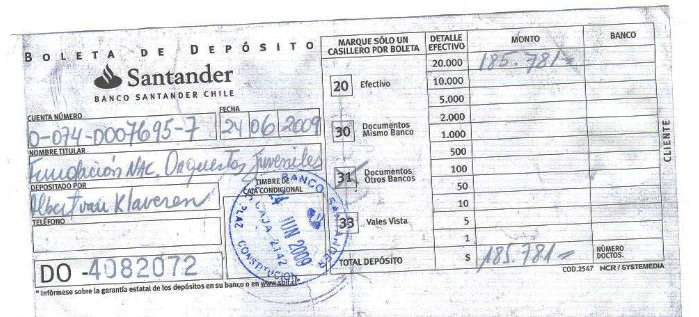 BOLETA DE DEPÓSITO
Santander
BANCO SANTANDER CHILE
CUENTA NÚMERO
0-074-0007695-7
FECHA
24 06 2009
NOMBRE TITULAR
Fundación NAC. Orquestas Juveniles
DEPOSITADO POR
Albert van Klaveren
TELÉFONO
TIMBRE DE
CAJA CONDICIONAL
BANCO SANTANDER
24 JUN 2009
CAJA 2142
CONSTITUCION
DO -4082072
*Infórmese sobre la garantía estatal de los depósitos en su banco o en www.sbif.cl*
MARQUE SÓLO UN
CASILLERO POR BOLETA
20 Efectivo
30 Documentos
Mismo Banco
31 Documentos
Otros Bancos
33 Vales Vista
DETALLE
EFECTIVO
MONTO
BANCO
20.000 185.781=
10.000
5.000
2.000
1.000
500
100
50
10
5
1
TOTAL DEPÓSITO $ 185.781=
NÚMERO
DOCTOS.
COD.2547 NCR / SYSTEMEDIA
CLIENTE